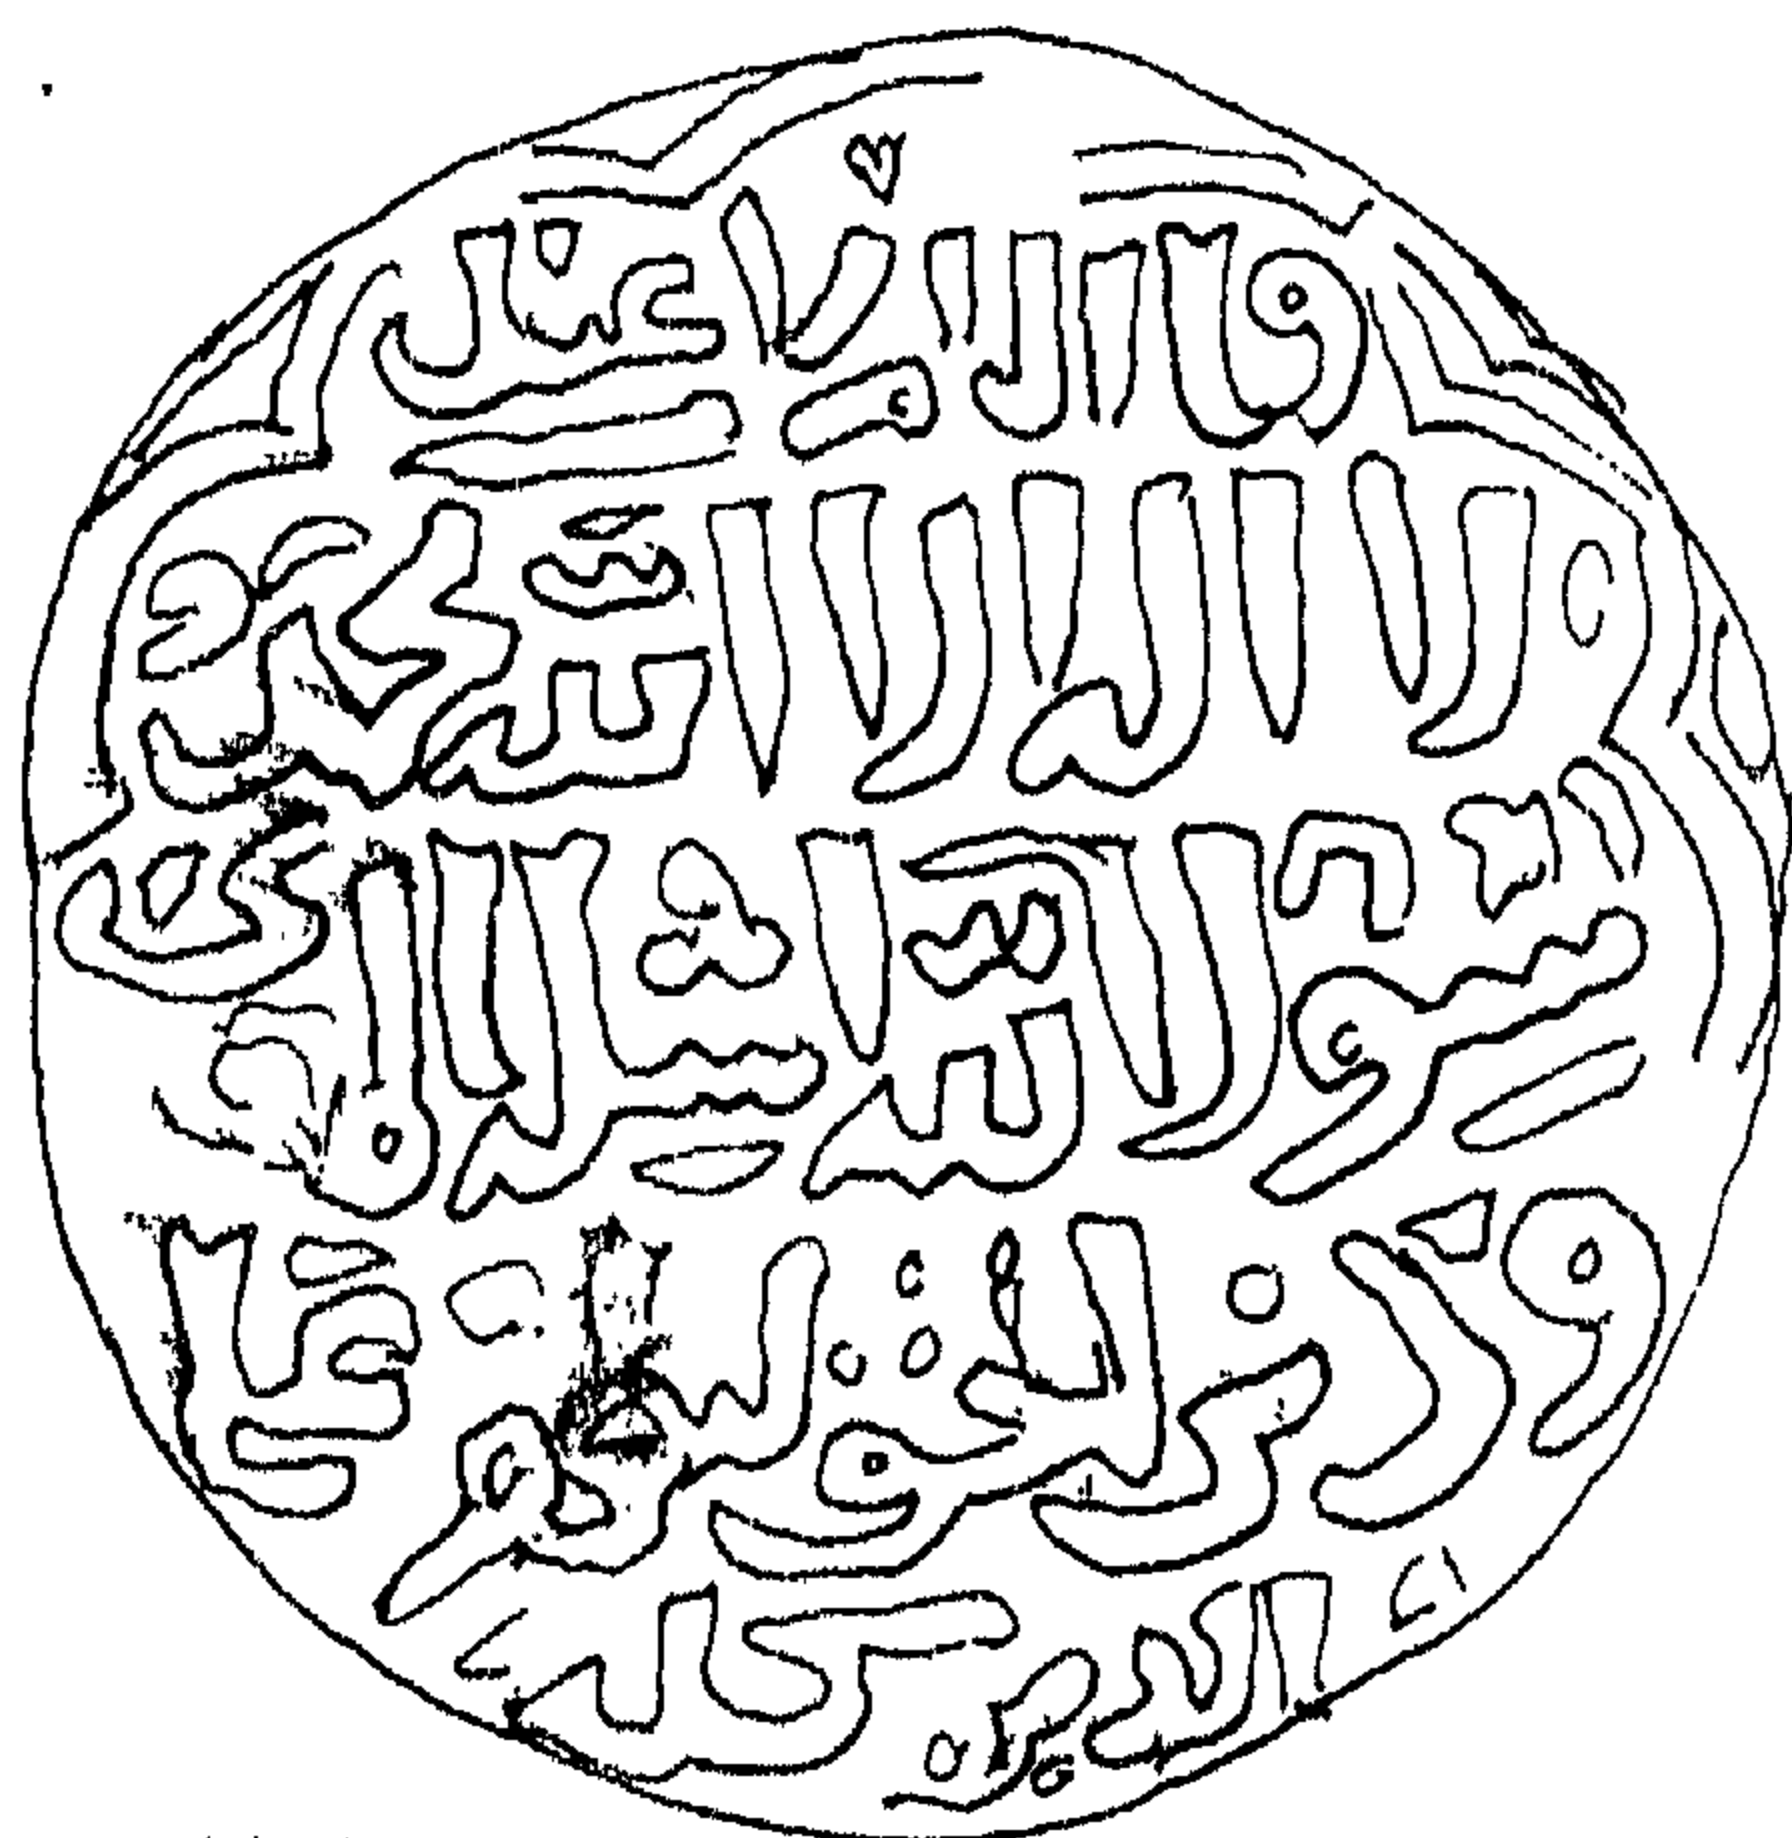 لا اله الا الله محمد
رسول الله ارسله بالهدى
ودين الحق ليظهره على
الدين كله